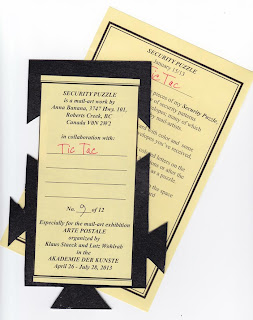 SECURITY PUZZLE
is a mail-art work by
Anna Banana, 3747 Hwy. 101,
Roberts Creek, BC
Canada V0N 2W2
in collaboration with:
Tic Tac
No. 9 of 12
Especially for the mail-art exhibition
ARTE POSTALE
organized by
Klaus Staeck and Lutz Wohlrab
in the
AKADEMIE DER KUNSTE
April 26 - July 28, 2013
SECURITY PUZZLE
January 15/13
Tic Tac
pieces of my Security Puzzle
of security patterns
many of which
mail artists.
with color and some
you've received,
letters on the
or alter the
the space